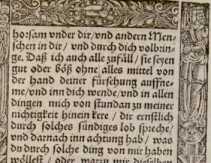 horsam vnder dir/vnd andern Men-
schen in dir/ vnd durch dich volbrin-
ge. Daß ich auch alle zufäll/ sie seyen
gut oder böß ohne alles mittel von
der hand deiner fürsehung auffne-
me/vnd inn dich wende/vnd in allen
dingen mich von stundan zu meiner
nichtigkeit hinein kere / dir ernstlich
durch solches sündiges lob spreche/
vnd darnach inn achtung hab/ was
du durch solche ding von mir haben
wöllest / oder warzu mir dieselben